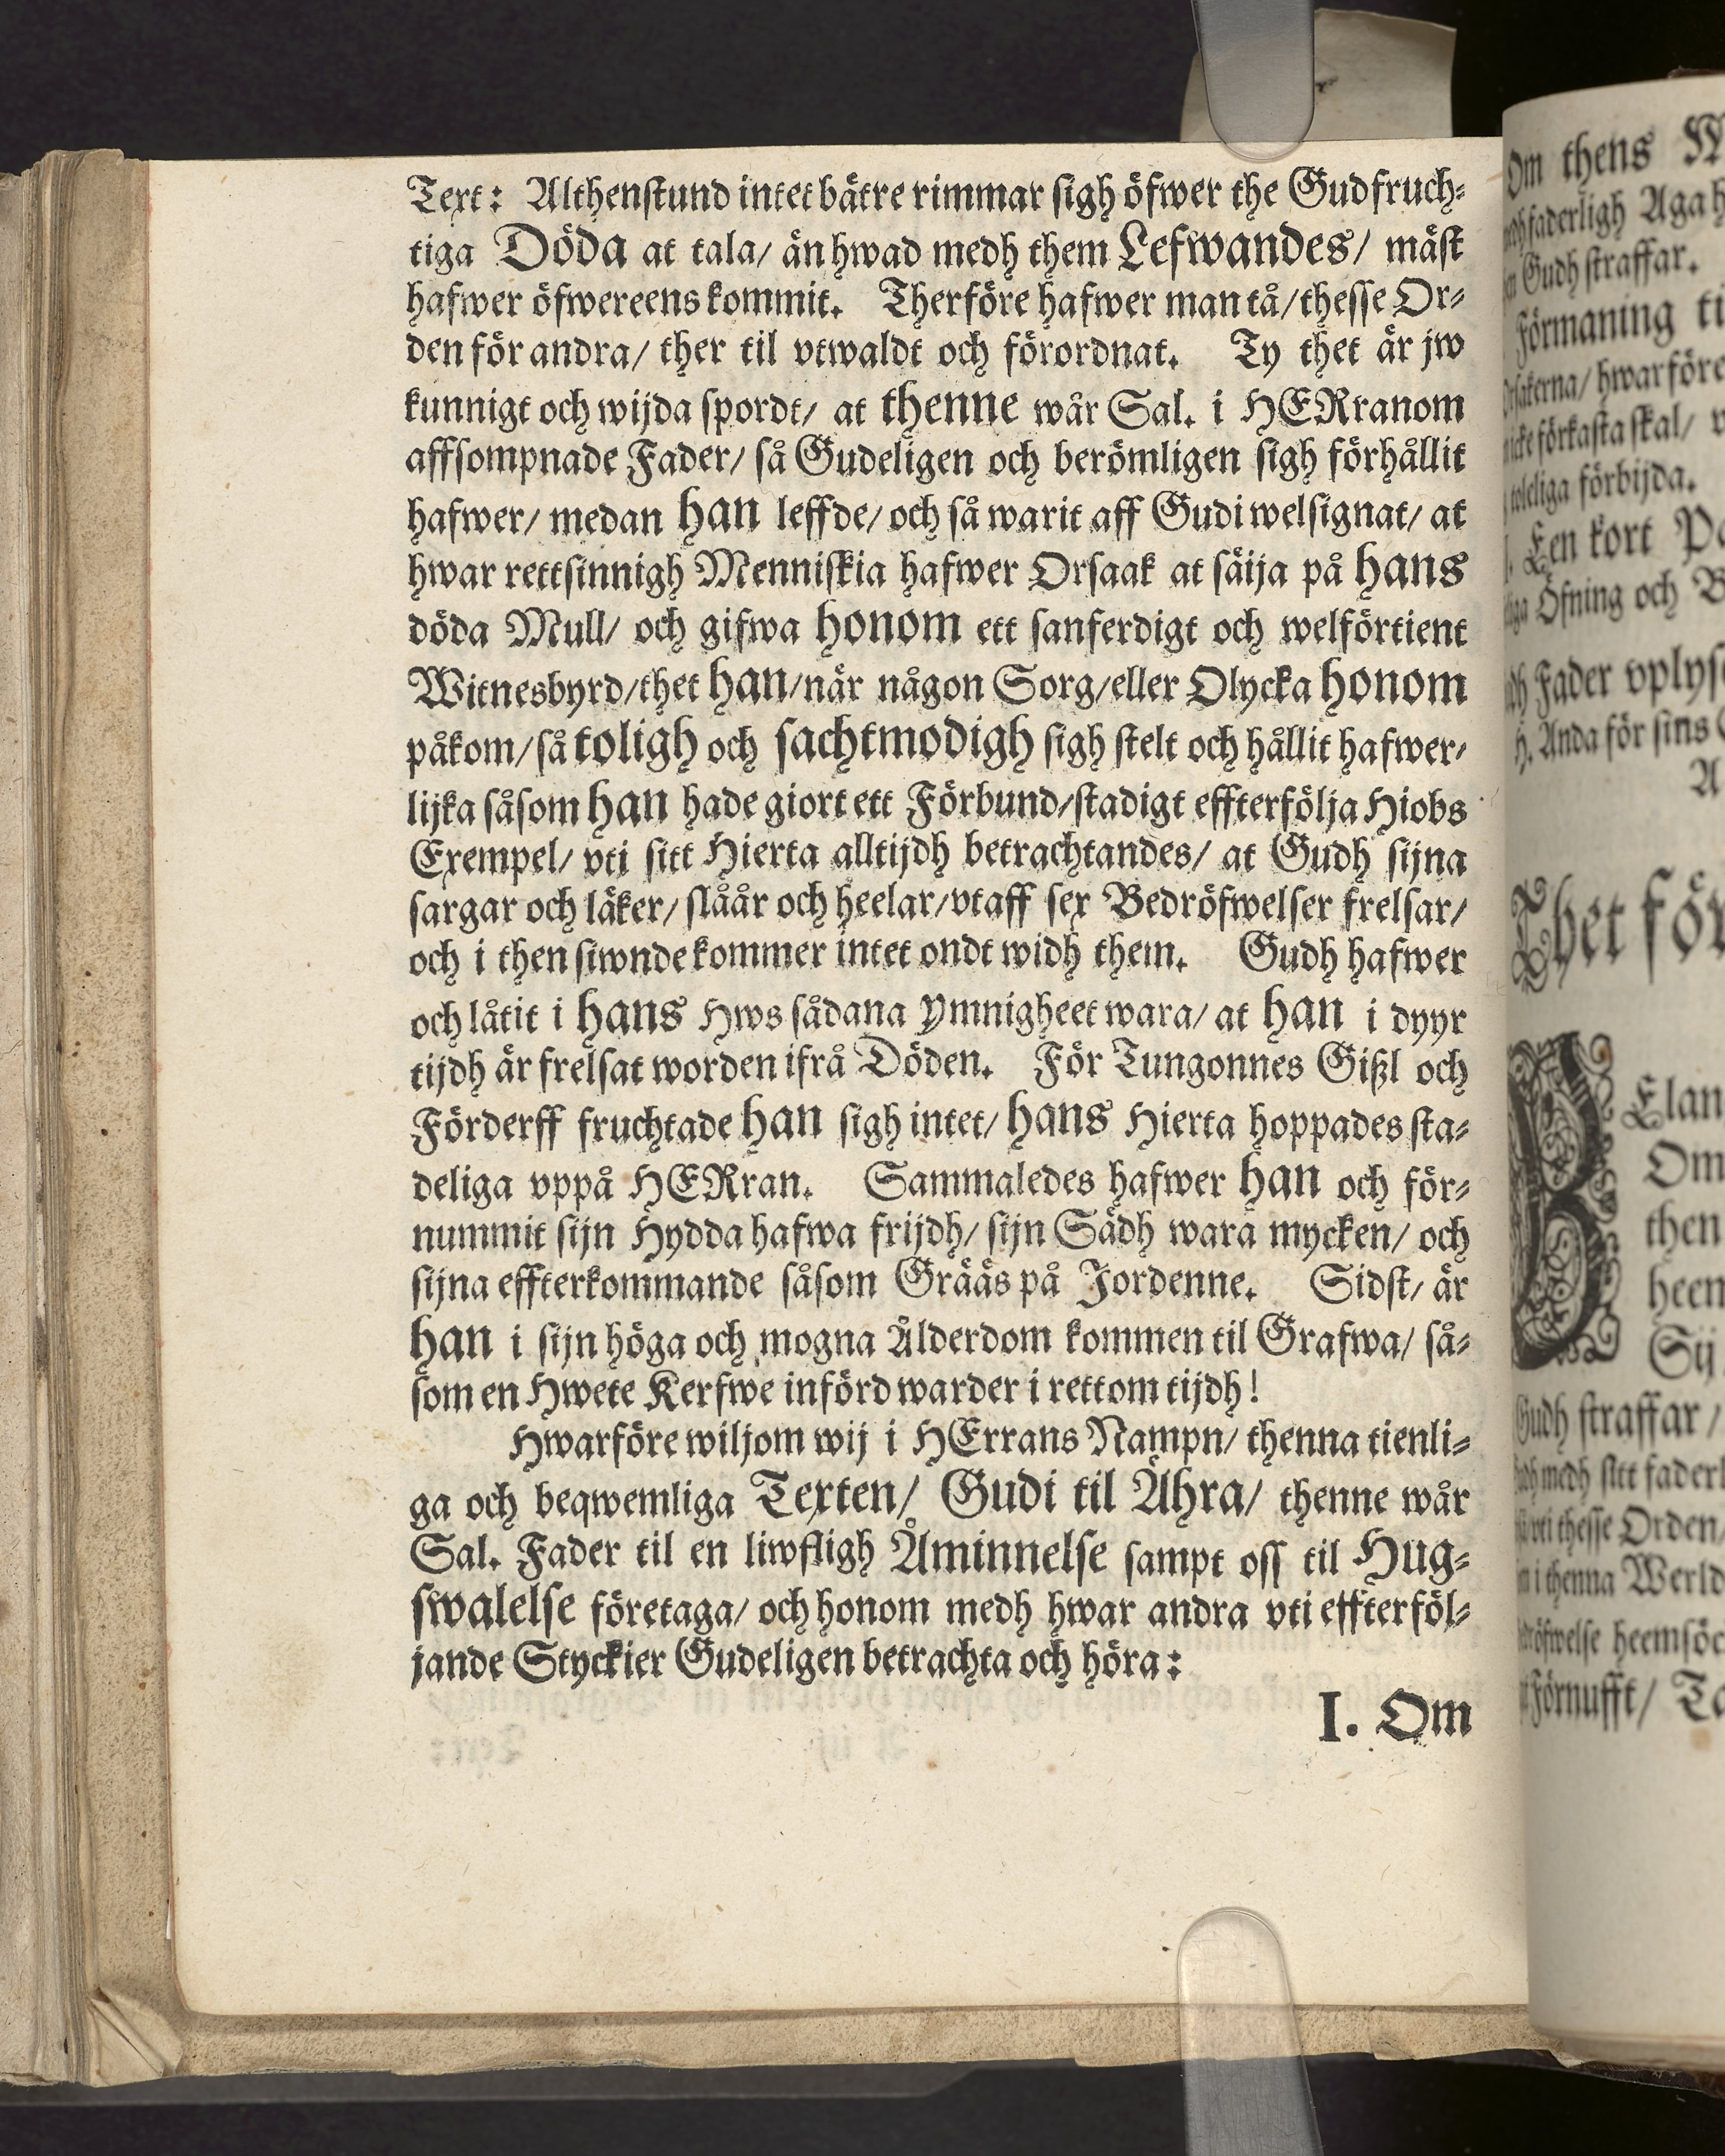 Text: Althenstund intet bätre rimmar sigh öfwer the Gudfruch-
tiga Döda at tala/ än hwad medh them Lefwandes/ mäst
hafwer öfwereens kommit. Therföre hafwer man tå/ thesse Or-
den för andra/ ther til vtwaldt och förordnat. Ty thet är jw
kunnigt och wijda spordt/ at thenne wår Sal. i HERranom
affsompnade Fader/ så Gudeligen och berömligen sigh förhållit
hafwer/ medan han leffde/ och så warit aff Gudi welsignat/ at
hwar rettsinnigh Menniskia hafwer Orsaak at säija på hans
döda Mull/ och gifwa honom ett sanferdigt och welförtient
Witnesbyrd/ thet han/ när någon Sorg/ eller Olycka honom
påkom/ så toligh och sachtmodigh sigh stelt och hållit hafwer/
lijka såsom han hade giort ett Förbund/ stadigt effterfölja Hiobs
Exempel/ vti sitt Hierta alltijdh betrachtandes/ at Gudh sijna
sargar och läker/ slåår och heelar/ vtaff sex Bedröfwelser frelsar/
och i then siwnde kommer intet ondt widh them. Gudh hafwer
och låtit i hans Hws sådana ymnigheet wara/ at han i dyyr
tijdh är frelsat worden ifrå Döden. För Tungonnes Gißl och
Förderff fruchtade han sigh intet/ hans Hierta hoppades sta-
deliga vppå HERran. Sammaledes hafwer han och för-
nummit sijn Hydda hafwa frijdh/ sijn Sädh wara mycken/ och
sijna effterkommande såsom Grääs på Jordenne. Sidst/ är
han i sijn höga och mogna Ålderdom kommen til Grafwa/ så-
som en Hwete Kerfwe införd warder i rettom tijdh!
Hwarföre wiljom wij i HErrans Nampn/ thenna tienli-
ga och beqwemliga Texten/ Gudi til Ähra/ thenne wår
Sal. Fader til en liwfligh Åminnelse sampt oss til Hug-
swalelse företaga/ och honom medh hwar andra vti effterföl-
jande Styckier Gudeligen betrachta och höra:
I. Om
Om thens
faderligh Agah
Gudh straffar.
Förmaning
hwarföre
förkasta skal/
förbijda.
Een kort
Öfning och
Fader vplys
H. Anda för sins
Thet för
BElan
Om
then
heem
Sij
Gudh straffar/
medh sitt faderl
vti thesse Orden/
i thenna Werld
heemsöc
Förnufft/